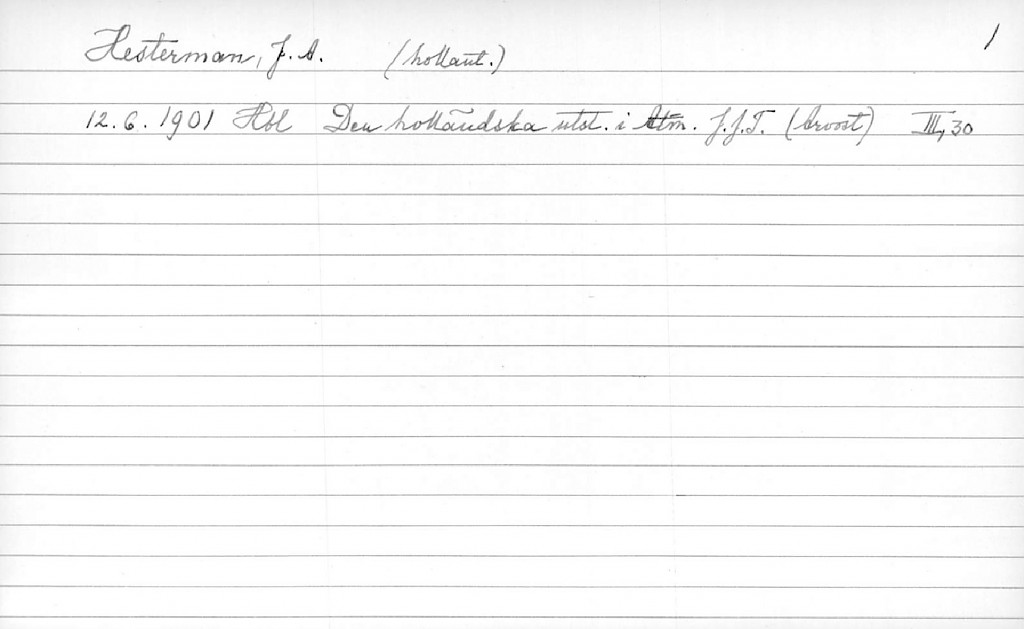 Hesterman, J. A. (hollant.) 1
12.6.1901 Hbl Den holländska utst. i Atm. J.J.T. (Arvost) III, 30